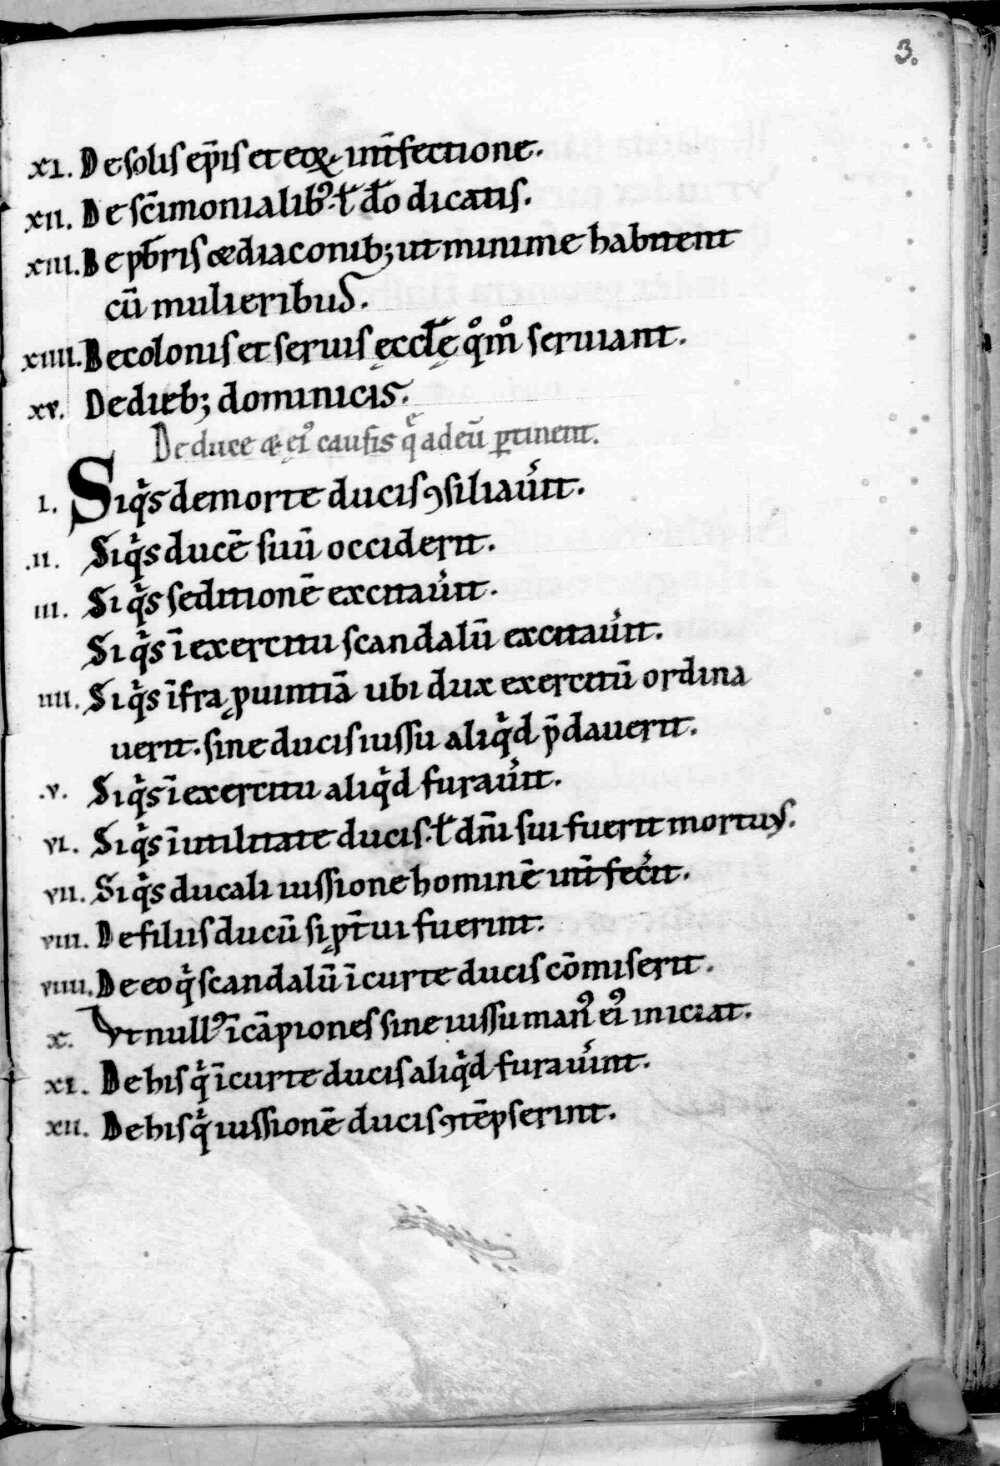 3.
xı. De solis ep̄is et eoꝝ int̄fectione.
xıı. De sc̄imonialibꝰ. ł đo dicatis.
xııı. De pb̄ris & diaconib; ut minime habitent
cū mulieribus.
xıııı. De colonis et seruis ęccłę qͦmͦ seruiant.
xv. De dieb; dominicis.
De duce & eiꝰ causis q̄ ad eū ꝑtinent.
ı. Siqͥs de morte ducis ꝯsiliau̓it.
.ıı. Siqͥs ducē suū occiderit.
ııı. Siqͥs seditionē excitau̓it.
Siqͥs ī exercitu scandalū excitau̓it.
ıııı. Siqͥs īfra ꝓuintiā ubi dux exercitū ordina
uerit. sine ducis iussu aliqͥd p̄dauerit.
.v. Siqͥs ī exercitu aliqͥd furau̓it.
vı. Siqͥs ī utilitate ducis. ł dn̄i sui fuerit mortuus.
vıı. Siqͥs ducali iussione hominē int̄fec̓it.
vııı. De filiis ducū si ꝓt̄ui fuerint.
vıııı. De eo qͥ scandalū ī curte ducis cōmiserit.
x. Vt nullꝰ īcāpiones sine iussu manꝰ eiꝰ iniciat.
xı. De his qͥ ī curte ducis aliqͥd furau̓int.
xıı. De his qͥ iussionē ducis ꝯtēpserint.